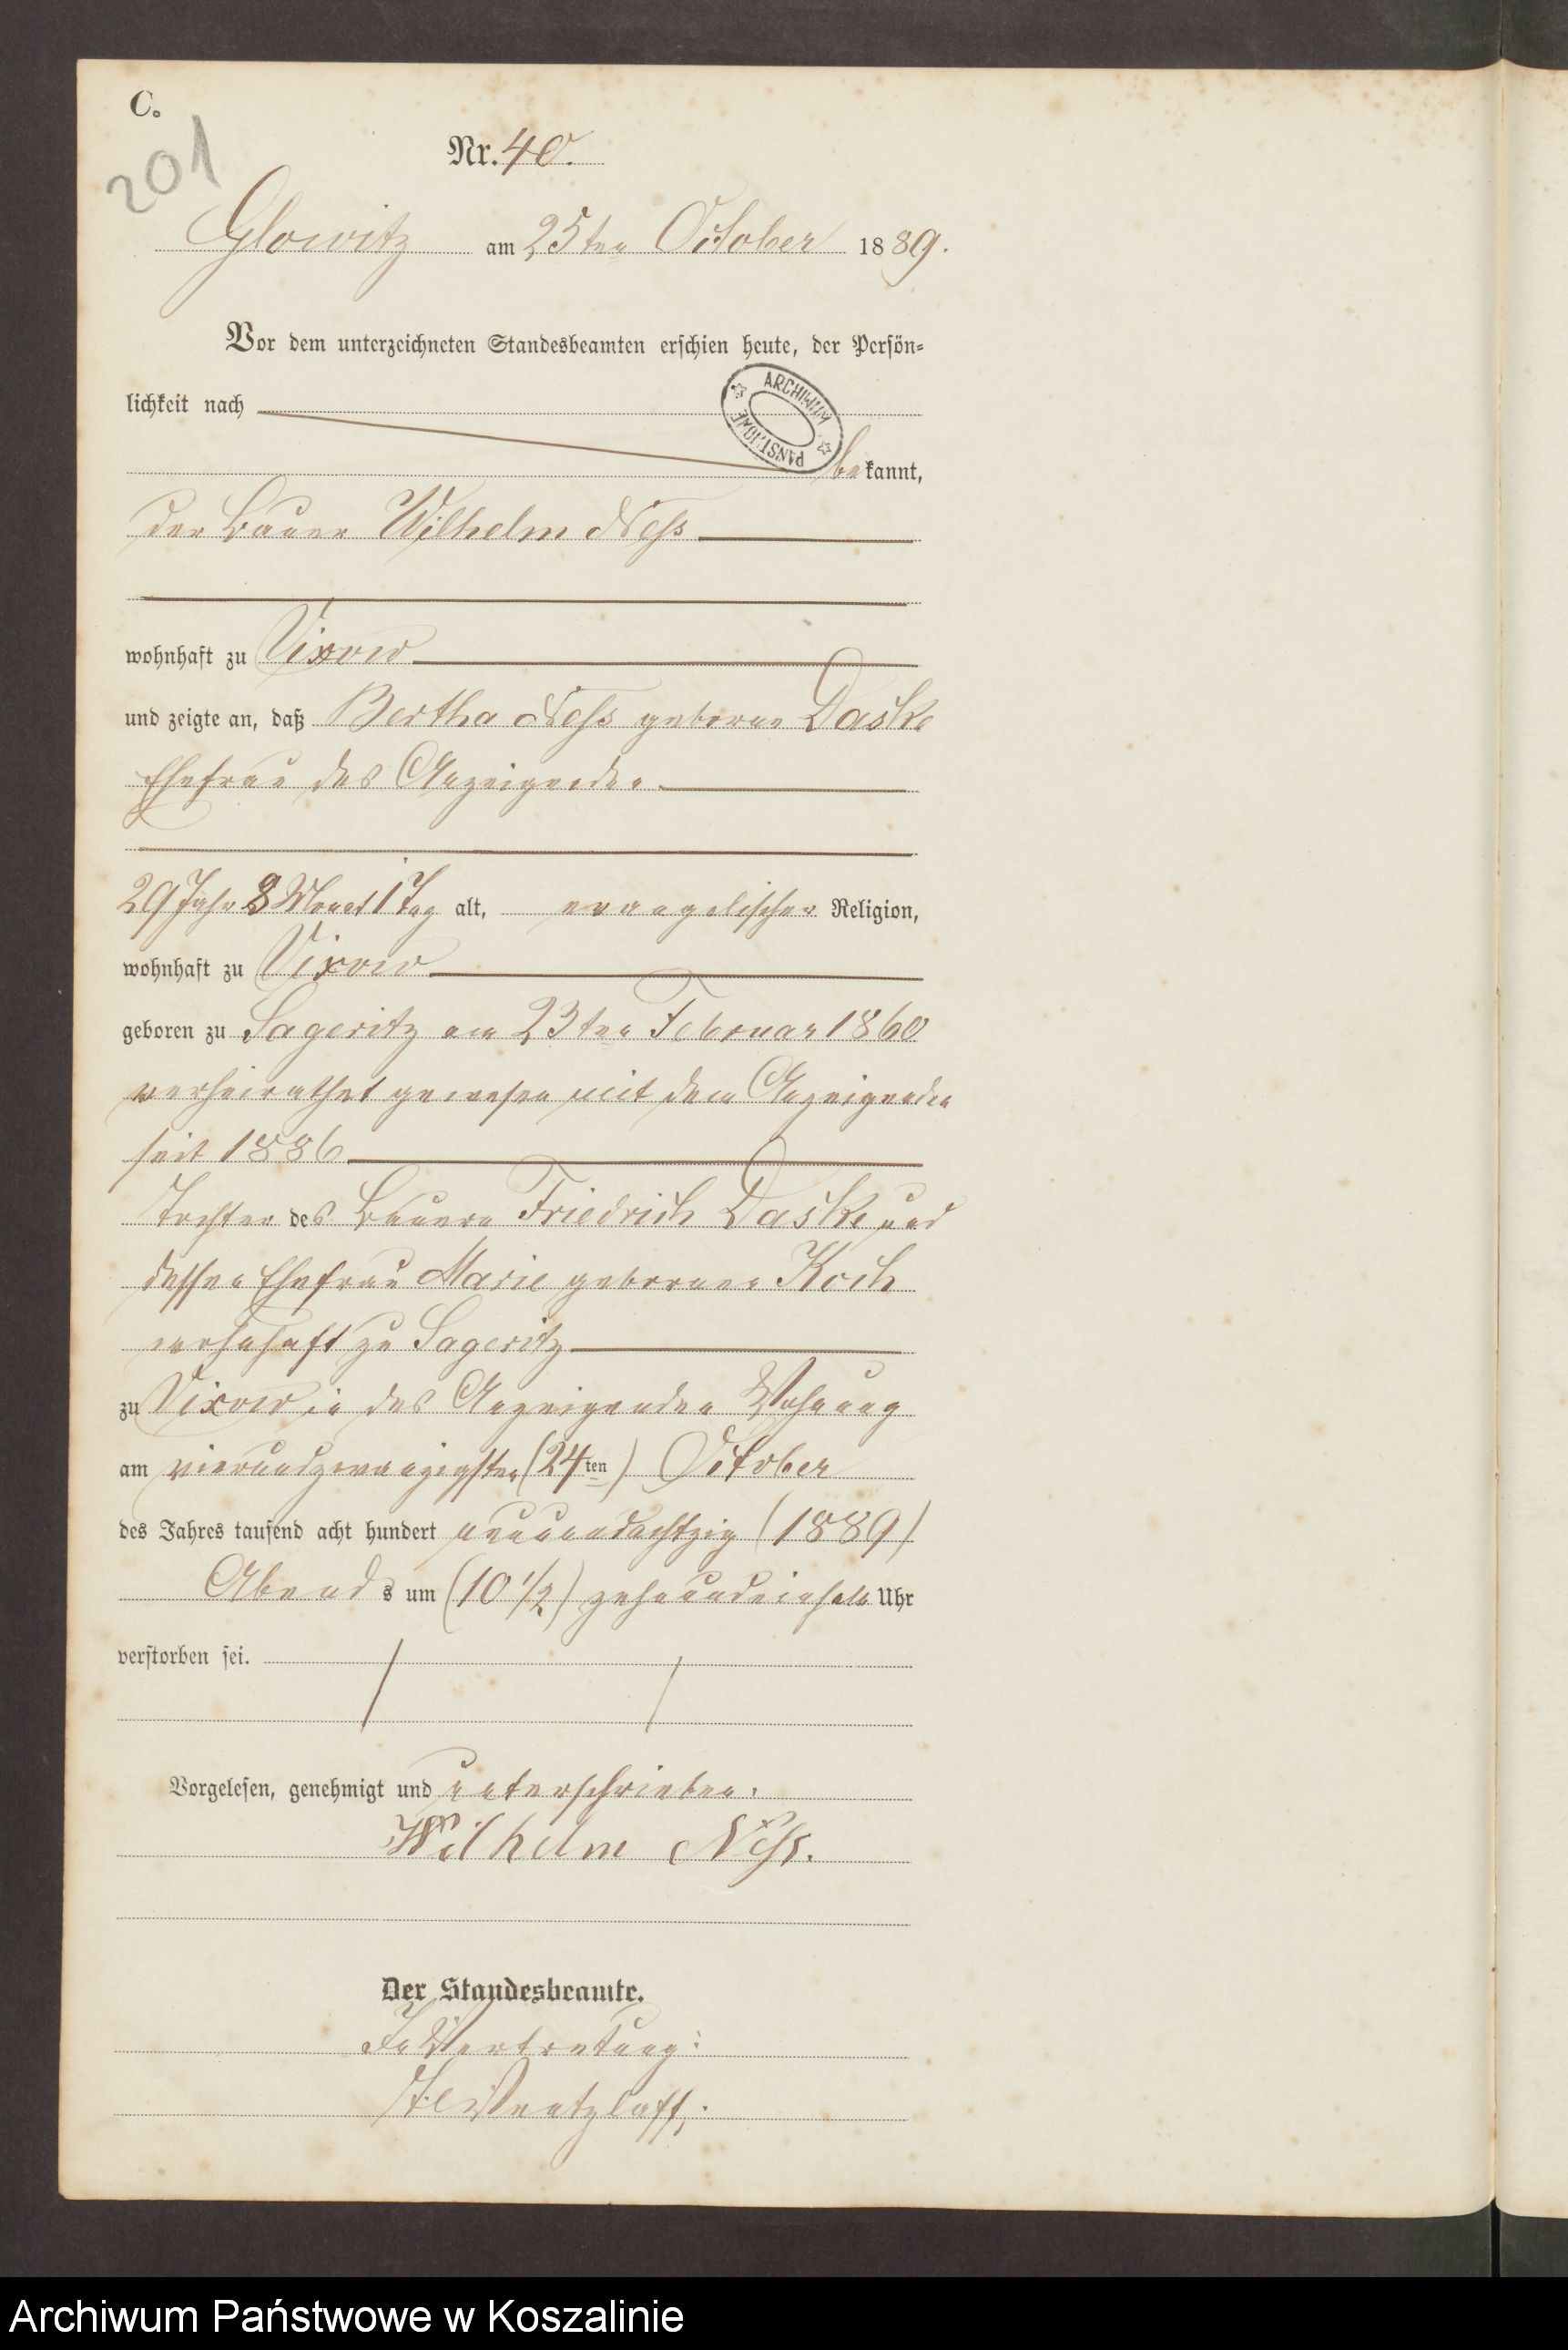 C.
201
Nr. 40.
Glowitz am 25ten October 1889.
Vor dem unterzeichneten Standesbeamten erschien heute, der Persön-
lichkeit nach
ARCHIWUM PAŃSTWOWE
bekannt,
der Bauer Wilhelm Neß
wohnhaft zu Vixow
und zeigte an, daß Bertha Neß geborne Daske
Ehefrau des Anzeigenden
29 Jahr 8 Monat 1 Tag alt, evangelischer Religion,
wohnhaft zu Vixow
geboren zu Sageritz am 23ten Februar 1860
verheirathet gewesen mit dem Anzeigenden
seit 1886
Tochter des Bauern Friedrich Daske und
dessen Ehefrau Marie geborner Koch
wohnhaft zu Sageritz
zu Vixow in des Anzeigenden Wohnung
am vierundzwanzigsten (24ten) October
des Jahres tausend acht hundert neunundachtzig (1889)
Abends um (10 1/2) zehnundeinhalb Uhr
verstorben sei.
Vorgelesen, genehmigt und unterschrieben.
Wilhelm Neß.
Der Standesbeamte.
In Vertretung:
Wentzlaff.
Archiwum Państwowe w Koszalinie